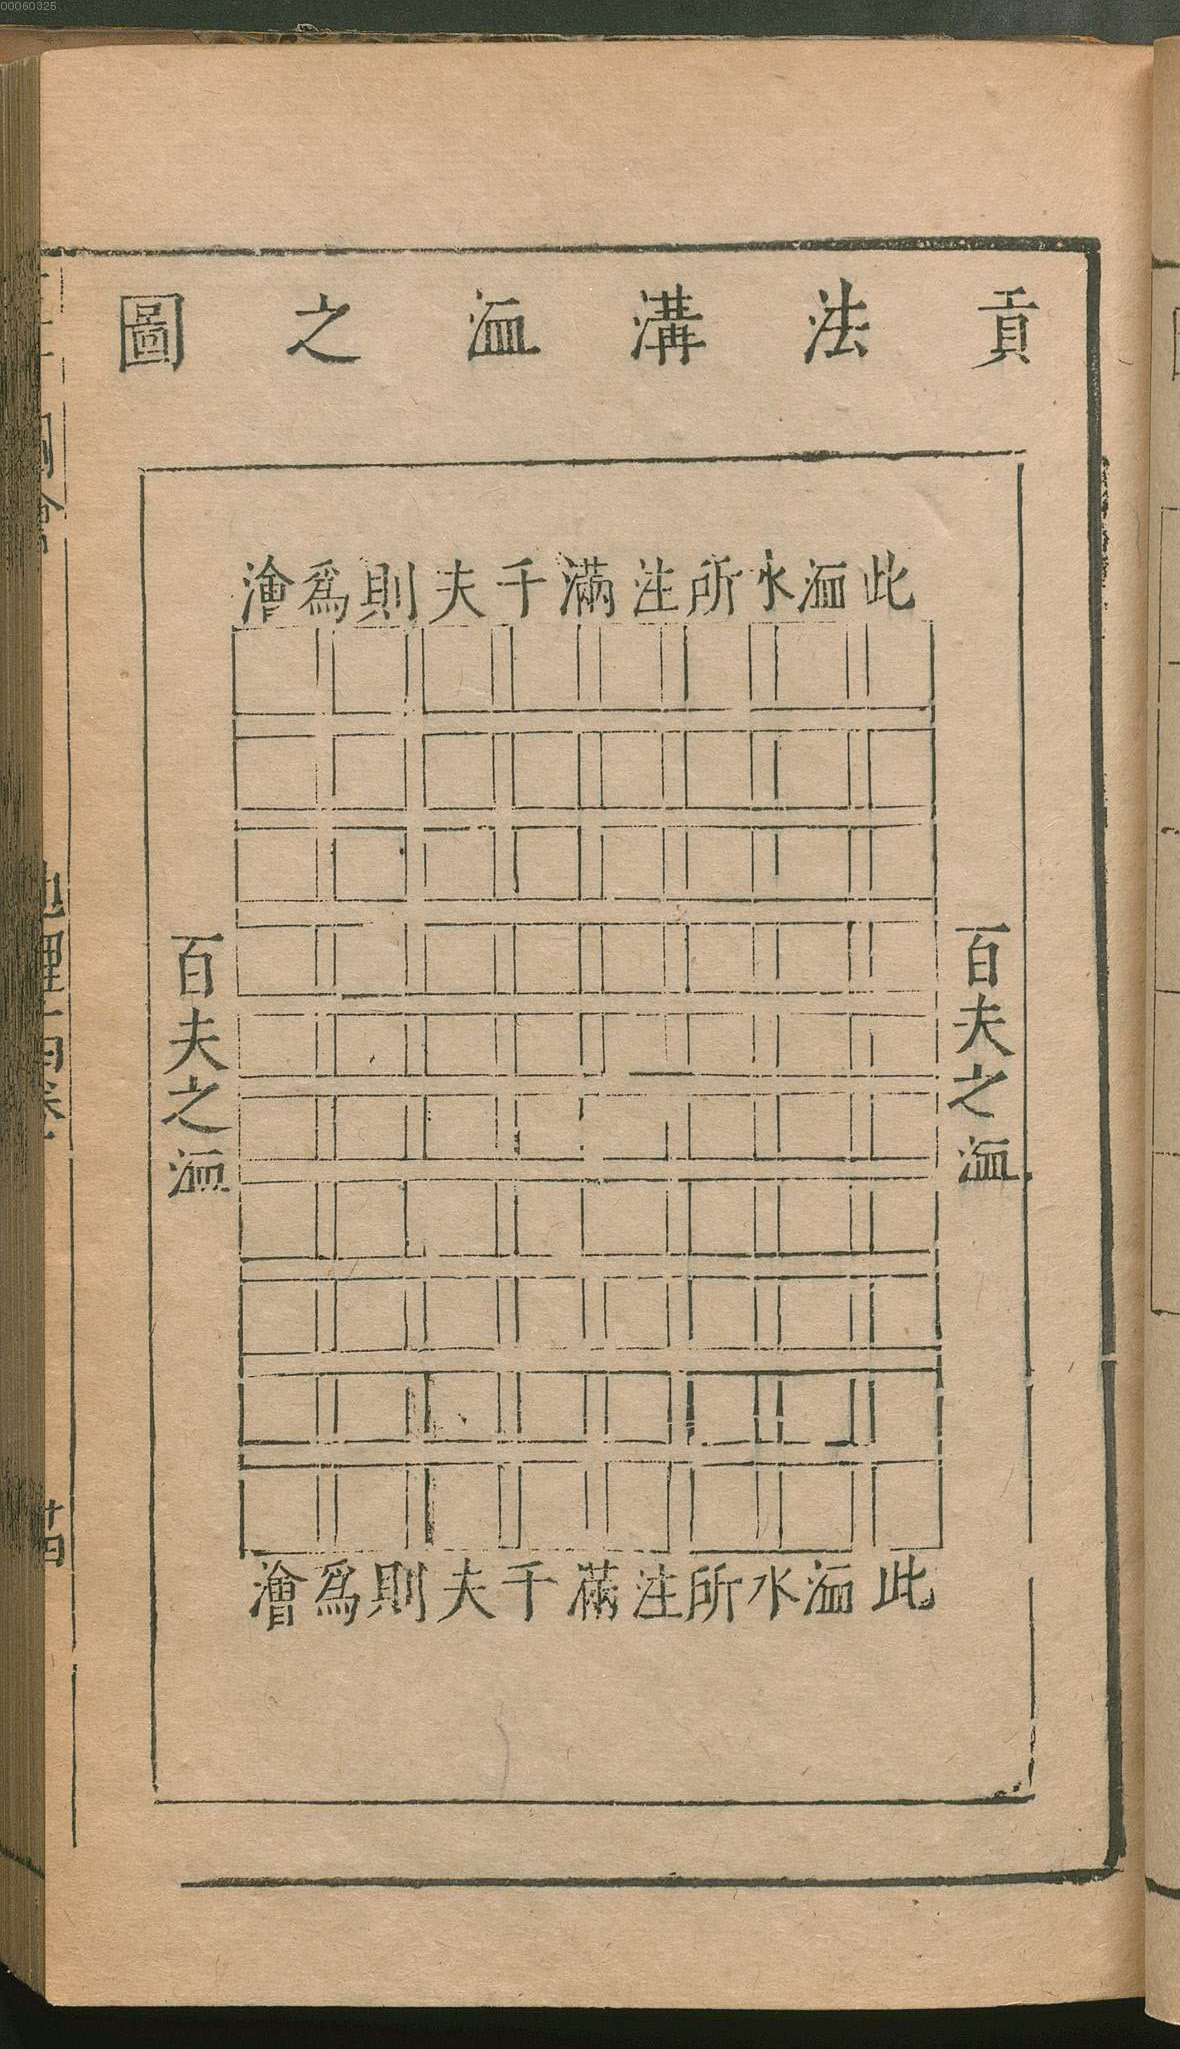 00060326
貢法溝洫之圖
此洫水所注滿千夫則爲澮
百夫之洫
百夫之洫
此洫水所注滿千夫則爲澮
地理十四卷